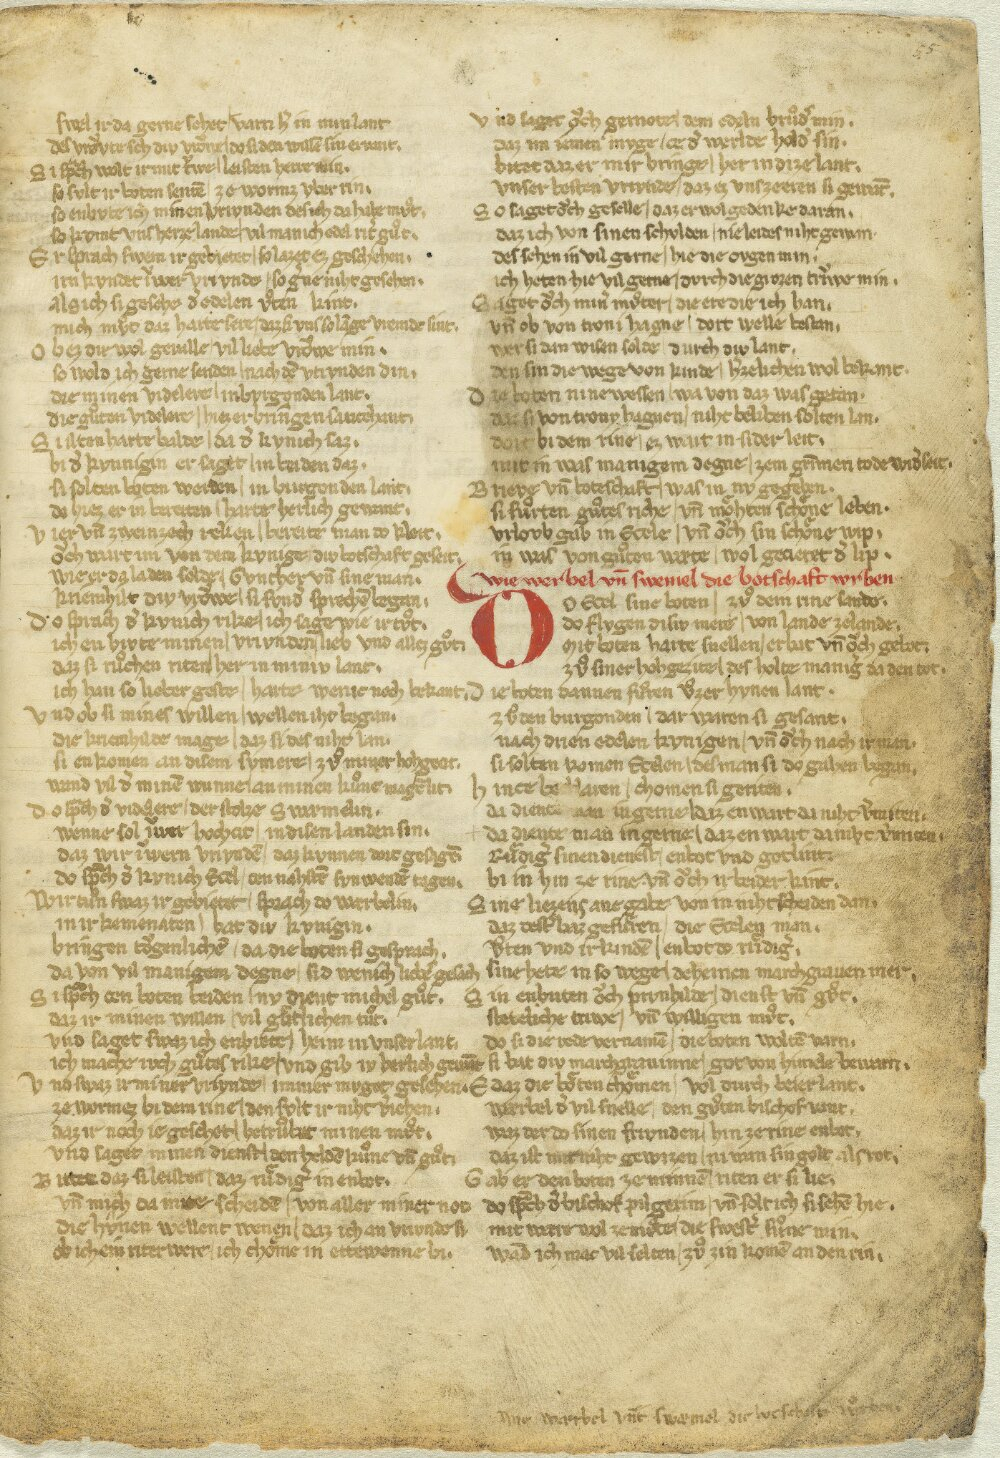 55
swel ir da gerne sehet varn h in min lant
des vrovte sich div vrowe do si den willen sin ervant.
Si sp̄ch wolt ir mir triwe leisten herre min.
so svlt ir boten senden ze wormz vber rin.
so enbvte ich minen vrivnden des ich da habe mvt.
so kvmt vns her ze lande vil manich edel rit̾ gůt.
Er sprach swem ir gebietet so lazet ez geschehen.
irn kvndet iwer vrivnde so g̾ne niht gesehen.
als ich si gesehe d̾ edelen vten kint.
mich mvt daz harte sere daz si vns so lange vremde sint.
Ob ez dir wol gevalle vil liebe vrowe min.
so wold ich gerne senden nach den vrivnden din.
die minen videlere in bvrgonden lant.
die gůten videlere hiez er bringen sa zehant
Si ilten harte balde da d̾ kvnich saz.
bi d̾ kvnigin er saget in beiden daz.
si solten boten werden in burgonden lant.
do hiez er in bereiten harte herlich gewant.
Vier vn̄ zweinzech rechen bereite man do kleit.
och wart im von dem kvnige div botschaft geseit.
wie er da laden solde Gvnther vn̄ sine man.
kriemhilt div vrowe si svnd̾ sprechen began.
Do sprach d̾ kvnich riche ich sage wie ir tvt.
ich enbivte minen vrivnden lieb vnd allez gůt.
daz si růchen riten her in miniv lant.
ich han so lieber geste harte wenic noch bekant.
Vnd ob si mines willen wellen iht began.
die kriemhilde mage daz si des niht lan.
si en komen an disem svmere zv miner hohgecit.
wand vil d̾ minen wunne an minen kone magen lit
Do sp̄ch d̾ videlere der stolze Swæmelin.
wenne sol iwer hochcit in disen landen sin.
daz wir iwern vrivnden daz kvnnen dort gesagen
do sp̄ch d̾ kvnich Ecel cen nahsten svnwenden tagen.
Wir tun swaz ir gebietet sprach do Werbelin.
in ir kemenaten bat div kvnigin.
bringen tovgenlichen da die boten si gesprach.
da von vil manigem degne sid wenich liebes gesach
Si sp̄ch cen boten beiden nv dient michel gůt.
daz ir minen willen vil gůtlichen tůt.
vnd saget swaz ich enbiete heim in vnser lant.
ich mache ivch gůtes riche vnd gib iv herlich gewant
Vnd swaz ir miner vrivnde immer mvget gesehen.
ze wormez bi dem rine den svlt ir niht v̾iehen.
daz ir noch ie gesehet betrůbet minen můt.
vnd saget minen dienst den helden kůne vn̄ gůt.
Bitet daz si leisten daz in d̾ kvnich enbot.
vn̄ mich da mite scheiden von aller miner not
die hvnen wellent wenen daz ich an vrivnde si
ob ich ein riter were ich chome in ettewenne bi.
Vnd saget och gernote dem edeln brůd̾ min.
daz im iemen mvge ce d̾ werlde hold̾ sin.
bitet daz er mir bringe her in dize lant.
vnser besten vrivnde daz ez vns ze eren si gewant.
So saget och giselhere daz er wol gedenke daran.
daz ich von sinen schvlden nie leides niht gewan.
des sehen in vil gerne hie die ovgen min.
ich heten hie vil gerne dvrch die grozen triwe min.
Saget och min̾ mvter die ere die ich han.
vn̄ ob von troni hagne dort welle bestan.
wer si dan wisen solde dvrch div lant.
dem sin die wege von kinde h̾zelichen wol bekant.
Die boten nine wessen wa von daz was getan.
daz si von trony hagnen niht beliben solten lan.
dort bi dem rine ez wart in sider leit.
mit in was manigem degne zem grimmen tode wid̾seit.
Brieve vn̄ boteschaft was in nv gegeben.
si fůrten gůtes riche vn̄ mohten schone leben.
vrlovb gab in Ecele vn̄ och sin schone wip.
in was von gůten wæte wol geciert d̾ lip.
wie werbel vn̄ swemel die botschaft wrben
Do Ecel sine boten zů dem rine sande.
do flvgen disiv mere von lande zelande.
mit boten harte snellen er bat vn̄ och gebot.
zů siner hohgezite des holte manig da den tot.
Die boten dannen fůren vz̾er hvnen lant.
zů den burgonden dar waren si gesant.
nach drien edelen kvnigen vn̄ och nach ir man.
si solten komen Ecelen des man si do gahen began.
Hin ce be laren chomen si geriten.
da diente man in gerne daz en wart da niht v̾miten.
da diente man in gerne daz en wart da niht v̾miten.
Rvdig̾ sinen dienest enbot vnd gotlint
bi in hin ze rine vn̄ och ir beider kint.
Sine liezens ane gabe von in niht scheiden dan.
daz dest̾ baz gefůren die Ecelen man.
Vten vnd ir kinden enbot do rvdig̾.
sine hete in so wege deheinen marchgraven mer.
Sin enbuten och prvnhilde dienst vn̄ gůt.
stæteliche triwe vn̄ willigen můt.
do si die rede vernamen die boten wolten varn.
si bat div marchgravinne got von himele bewarn.
E daz die boten chomen vol durch beier lant.
werbel d̾ vil snelle den gůten bischof vant.
waz der do sinen frivnden hin ze rine enbot.
daz ist mir niht gewizen ni wan sin golt als rot.
Gab er den boten ze minnen riten er si lie.
do sp̄ch d̾ bischof pilgerin vn̄ solt ich si sehen hie.
mir were wol ze můte die swest̾ sůne min.
wand ich mac vil selten zů zin komen an den rin.
Wie werbel vnt swæmel die botschaft wurben.